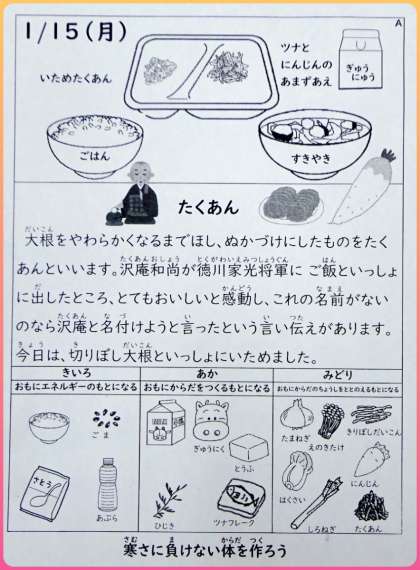 A
1/15(月)
いためたくあん
ツナと
にんじんの
あまずあえ
ぎゅう
にゅう
ごはん
すきやき
たくあん
だいこん
大根をやわらかくなるまでほし、ぬかづけにしたものをたく
たくあんおしょう とくがわいえみつしょうぐん はん
あんといいます。沢庵和尚が徳川家光将軍に ご飯といっしょ
だ かんどう なまえ
に出したところ、とてもおいしいと感動し、これの名前がない
たくあん なづ い い つた
のなら沢庵と名付けようと言ったという言い伝えがあります。
きょう き だいこん
今日は、切りぼし大根といっしょにいためました。
きいろ
おもにエネルギーのもとになる
あか
おもにからだをつくるもとになる
みどり
おもにからだのちょうしをととのえるもとになる
ごま
さとう
あぶら
ぎゅうにく
とうふ
ひじき
ツナフレーク
たまねぎ
えのきたけ
きりぼしだいこん
にんじん
はくさい
しろねぎ
たくあん
さむ ま からだ つく
寒さに負けない体を作ろう